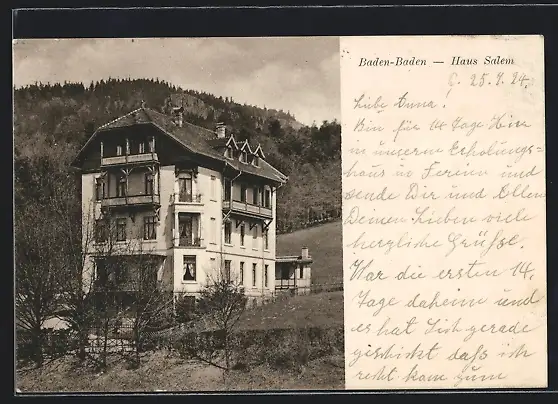 Baden-Baden — Haus Salem
C. 25.7.24.
Liebe Anna!
Bin für 14 Tage Hier
in unserm Erholungs=
haus in Ferien und
sende Dir und Allen
Deinen Lieben viele
herzliche Grüsse.
War die ersten 14
Tage daheim und
es hat sich gerade
geschickt daß ich
recht kam zum